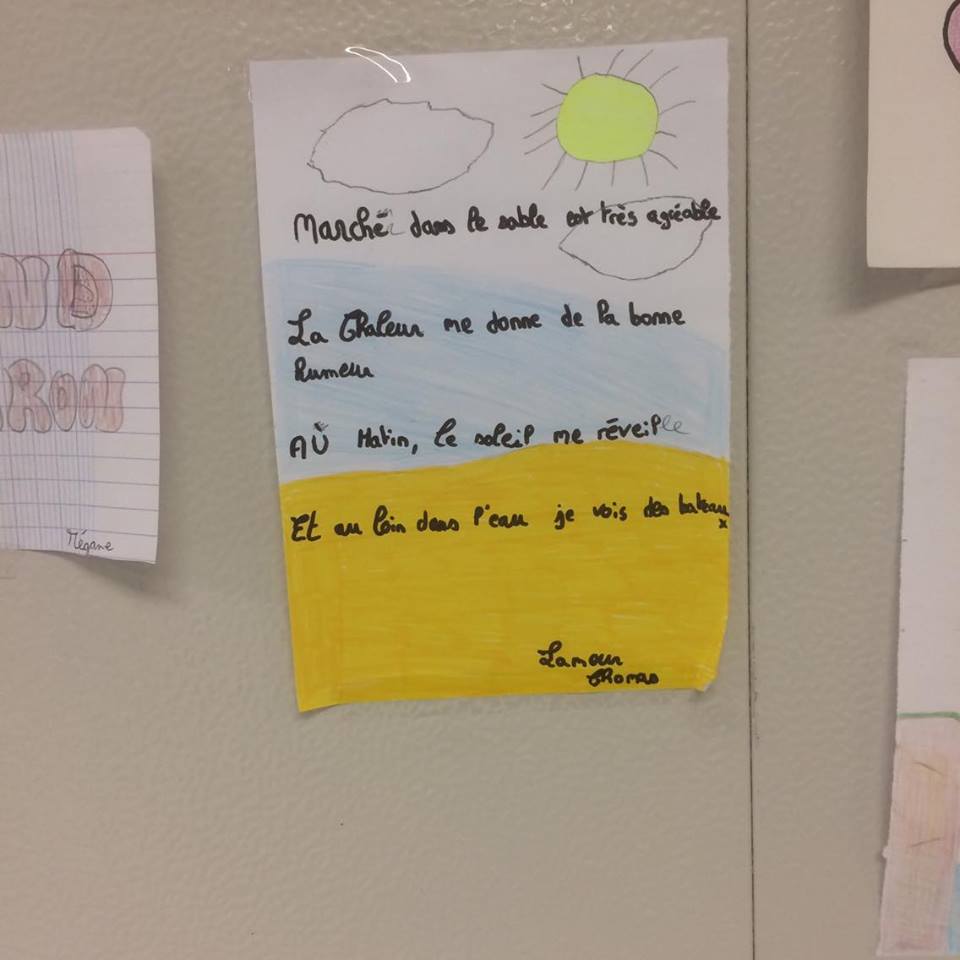 ND
RON
Mégane
Marché dans le sable est très agréable
La Chaleur me donne de la bonne
humeur
AÙ Matin, le soleil me réveille
Et au loin dans l'eau je vois des bateau
x
Lamour
Thomas